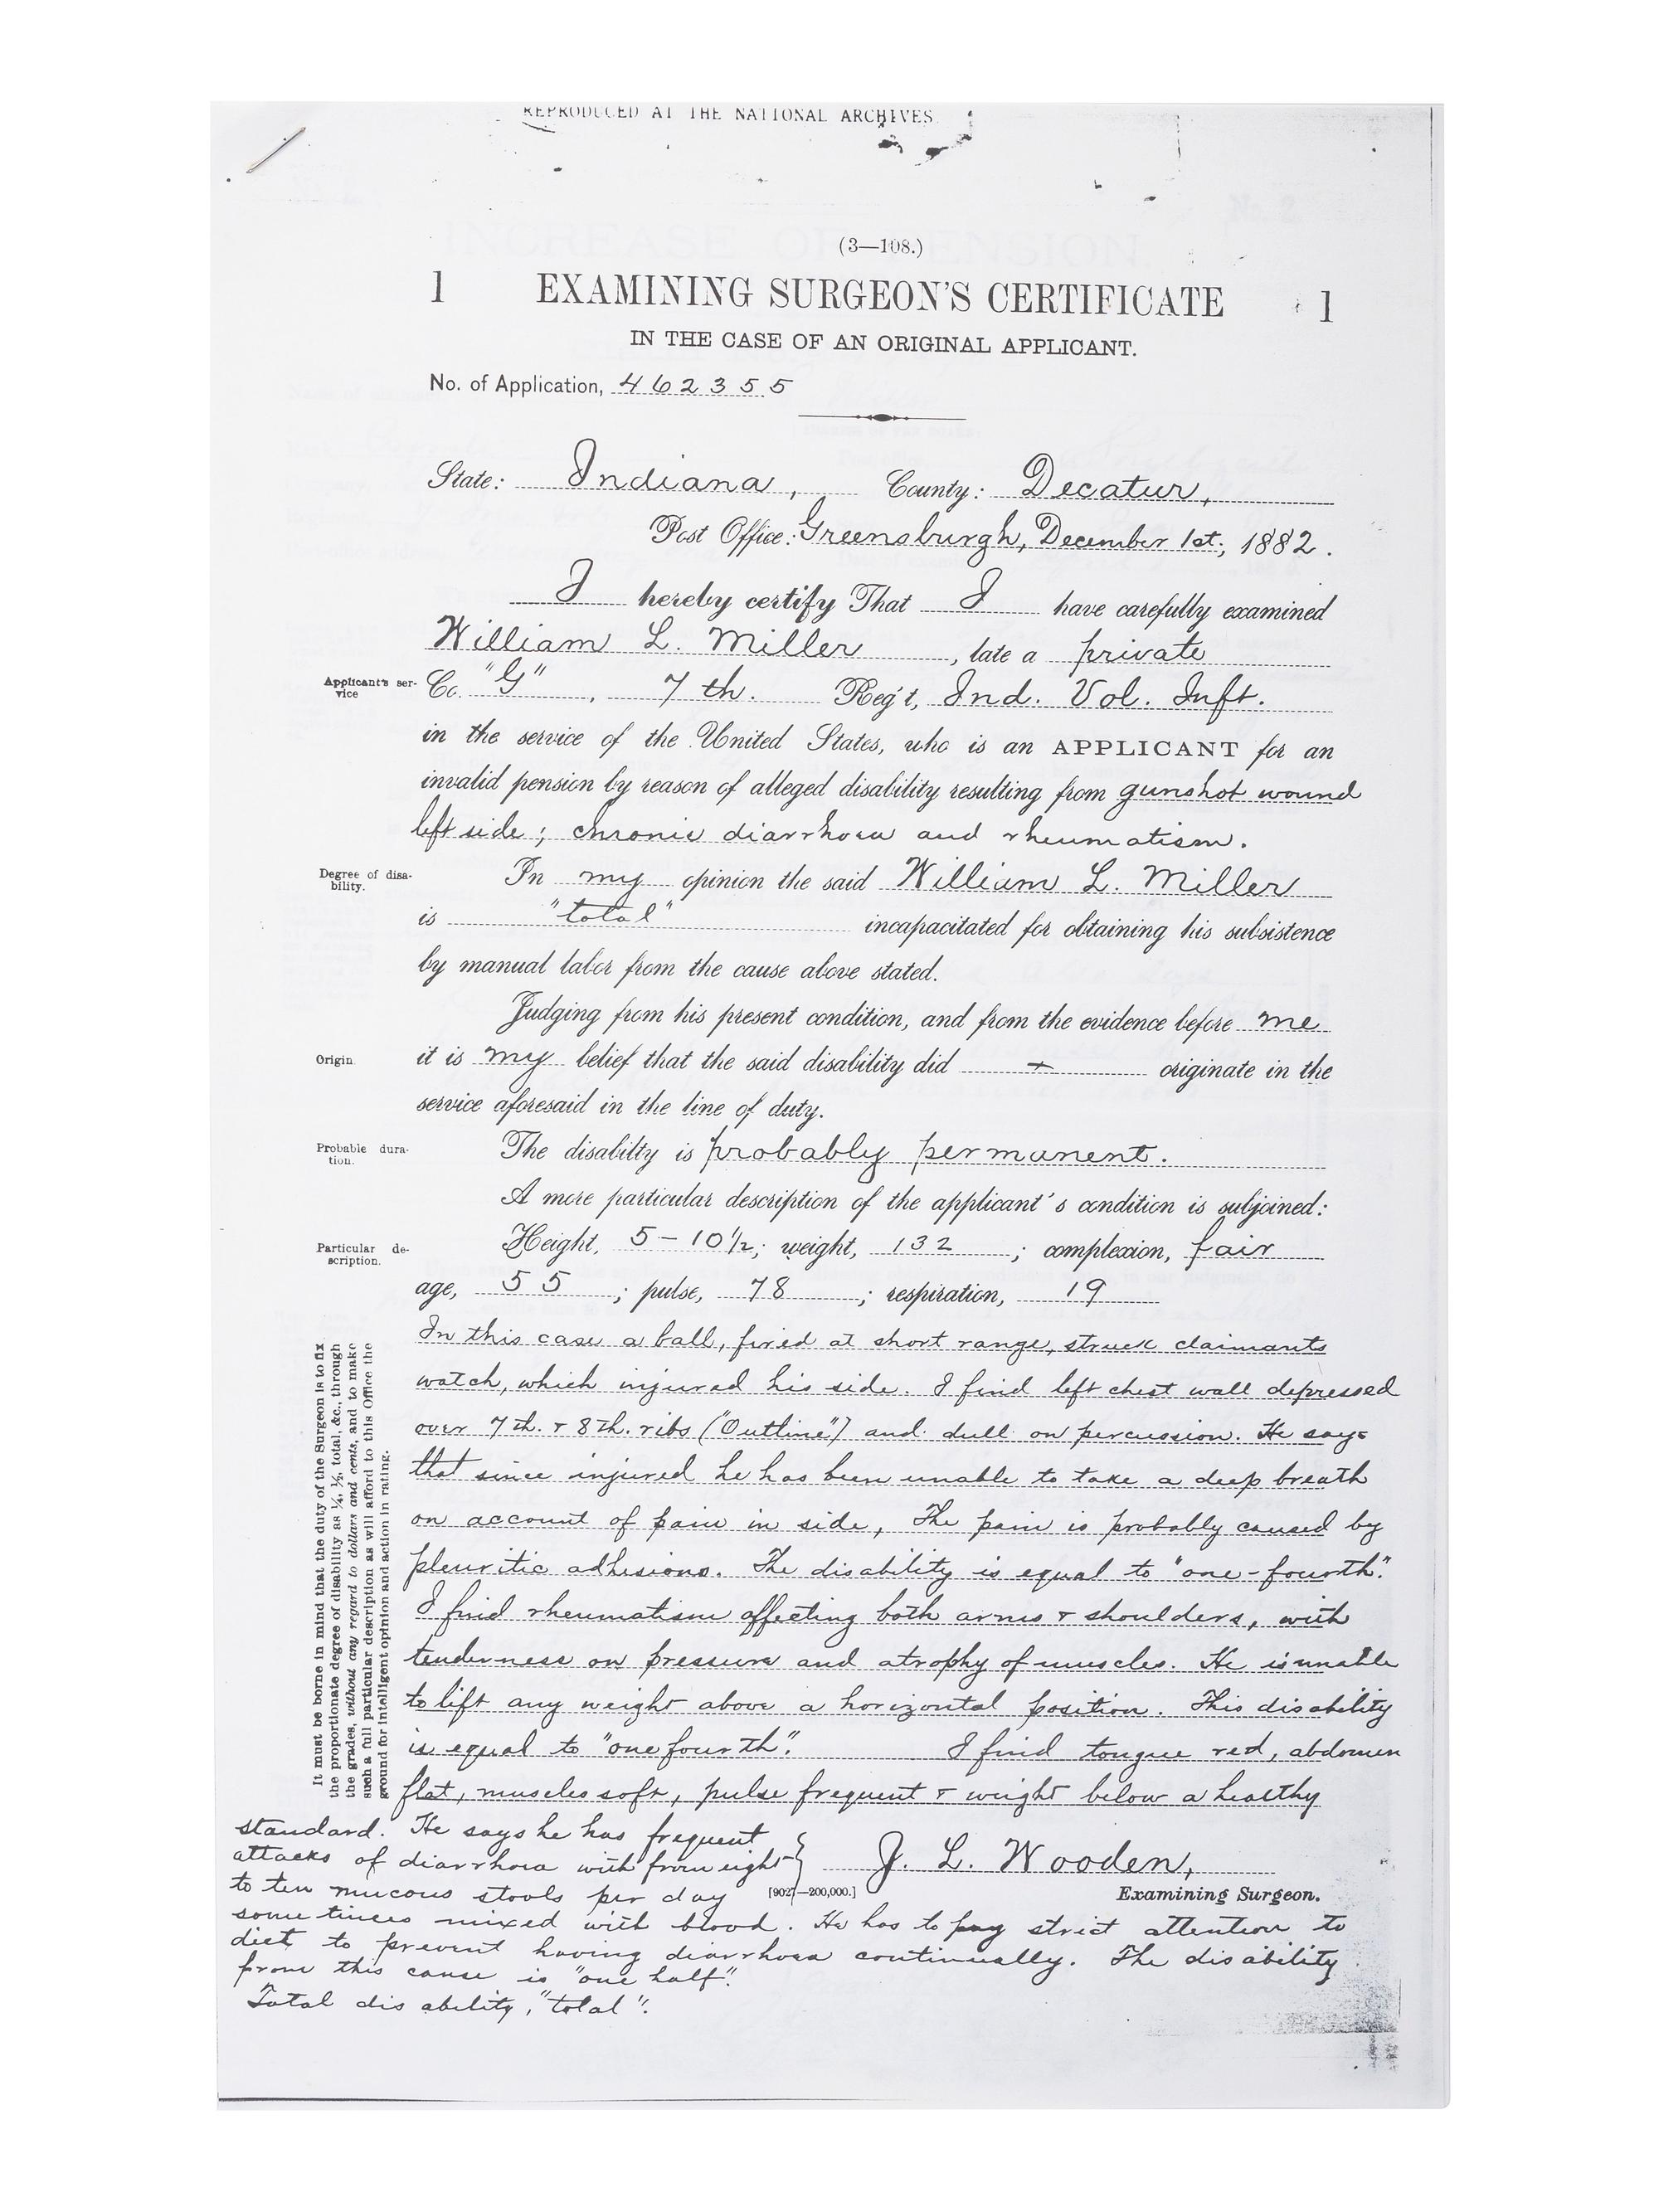 REPRODUCED AT THE NATIONAL ARCHIVES
(3—108.)
1 EXAMINING SURGEON'S CERTIFICATE 1
IN THE CASE OF AN ORIGINAL APPLICANT.
No. of Application, 462355
State: Indiana, County: Decatur,
Post Office: Greensburgh, December 1st, 1882.
I hereby certify That I have carefully examined
William L. Miller, late a private
Applicant's service
Co. "G", 7th. Reg't, Ind. Vol. Inft.
in the service of the United States, who is an APPLICANT for an
invalid pension by reason of alleged disability resulting from gunshot wound
left side; chronic diarrhoea and rheumatism.
Degree of disability.
In my opinion the said William L. Miller
is "total" incapacitated for obtaining his subsistence
by manual labor from the cause above stated.
Judging from his present condition, and from the evidence before me
Origin
it is my belief that the said disability did + originate in the
service aforesaid in the line of duty.
Probable duration.
The disabilty is probably permanent.
A more particular description of the applicant's condition is subjoined:
Particular description.
Height, 5-10½; weight, 132; complexion, fair
age, 55; pulse, 78; respiration, 19
In this case a ball, fired at short range, struck claimants
watch, which injured his side. I find left chest wall depressed
over 7th. & 8th. ribs ("Outline") and dull on percussion. He says
that since injured he has been unable to take a deep breath
on account of pain in side, The pain is probably caused by
pleuritic adhesions. The disability is equal to "one-fourth".
I find rheumatism affecting both arms & shoulders, with
tenderness on pressure and atrophy of muscles. He is unable
to lift any weight above a horizontal position. This disability
is equal to "one fourth". I find tongue red, abdomen
flat, muscles soft, pulse frequent & weight below a healthy
standard. He says he has frequent
attacks of diarrhoea with from eight
to ten mucous stools per day
sometimes mixed with blood. He has to pay strict attention to
diet to prevent having diarrhoea continually. The disability
from this cause is "one half".
Total disability, "total".
J. L. Wooden,
[9027—200,000.] Examining Surgeon.
It must be borne in mind that the duty of the Surgeon is to fix
the proportionate degree of disability as ¼, ½, total, &c., through
the grades, without any regard to dollars and cents, and to make
such a full particular description as will afford to this Office the
ground for intelligent opinion and action in rating.